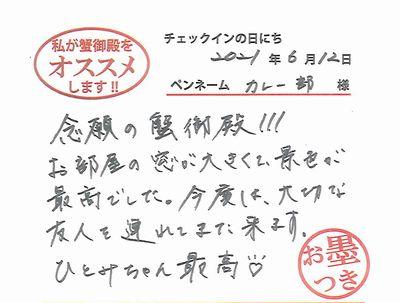 私が蟹御殿を
オススメ
します!!
チェックインの日にち
2021年6月12日
ペンネーム カレー部 様
念願の蟹御殿!!!
お部屋の窓が大きくて、景色が
最高でした。今度は、大切な
友人を連れてまた来ます。
ひとみちゃん最高♡
お墨
つき